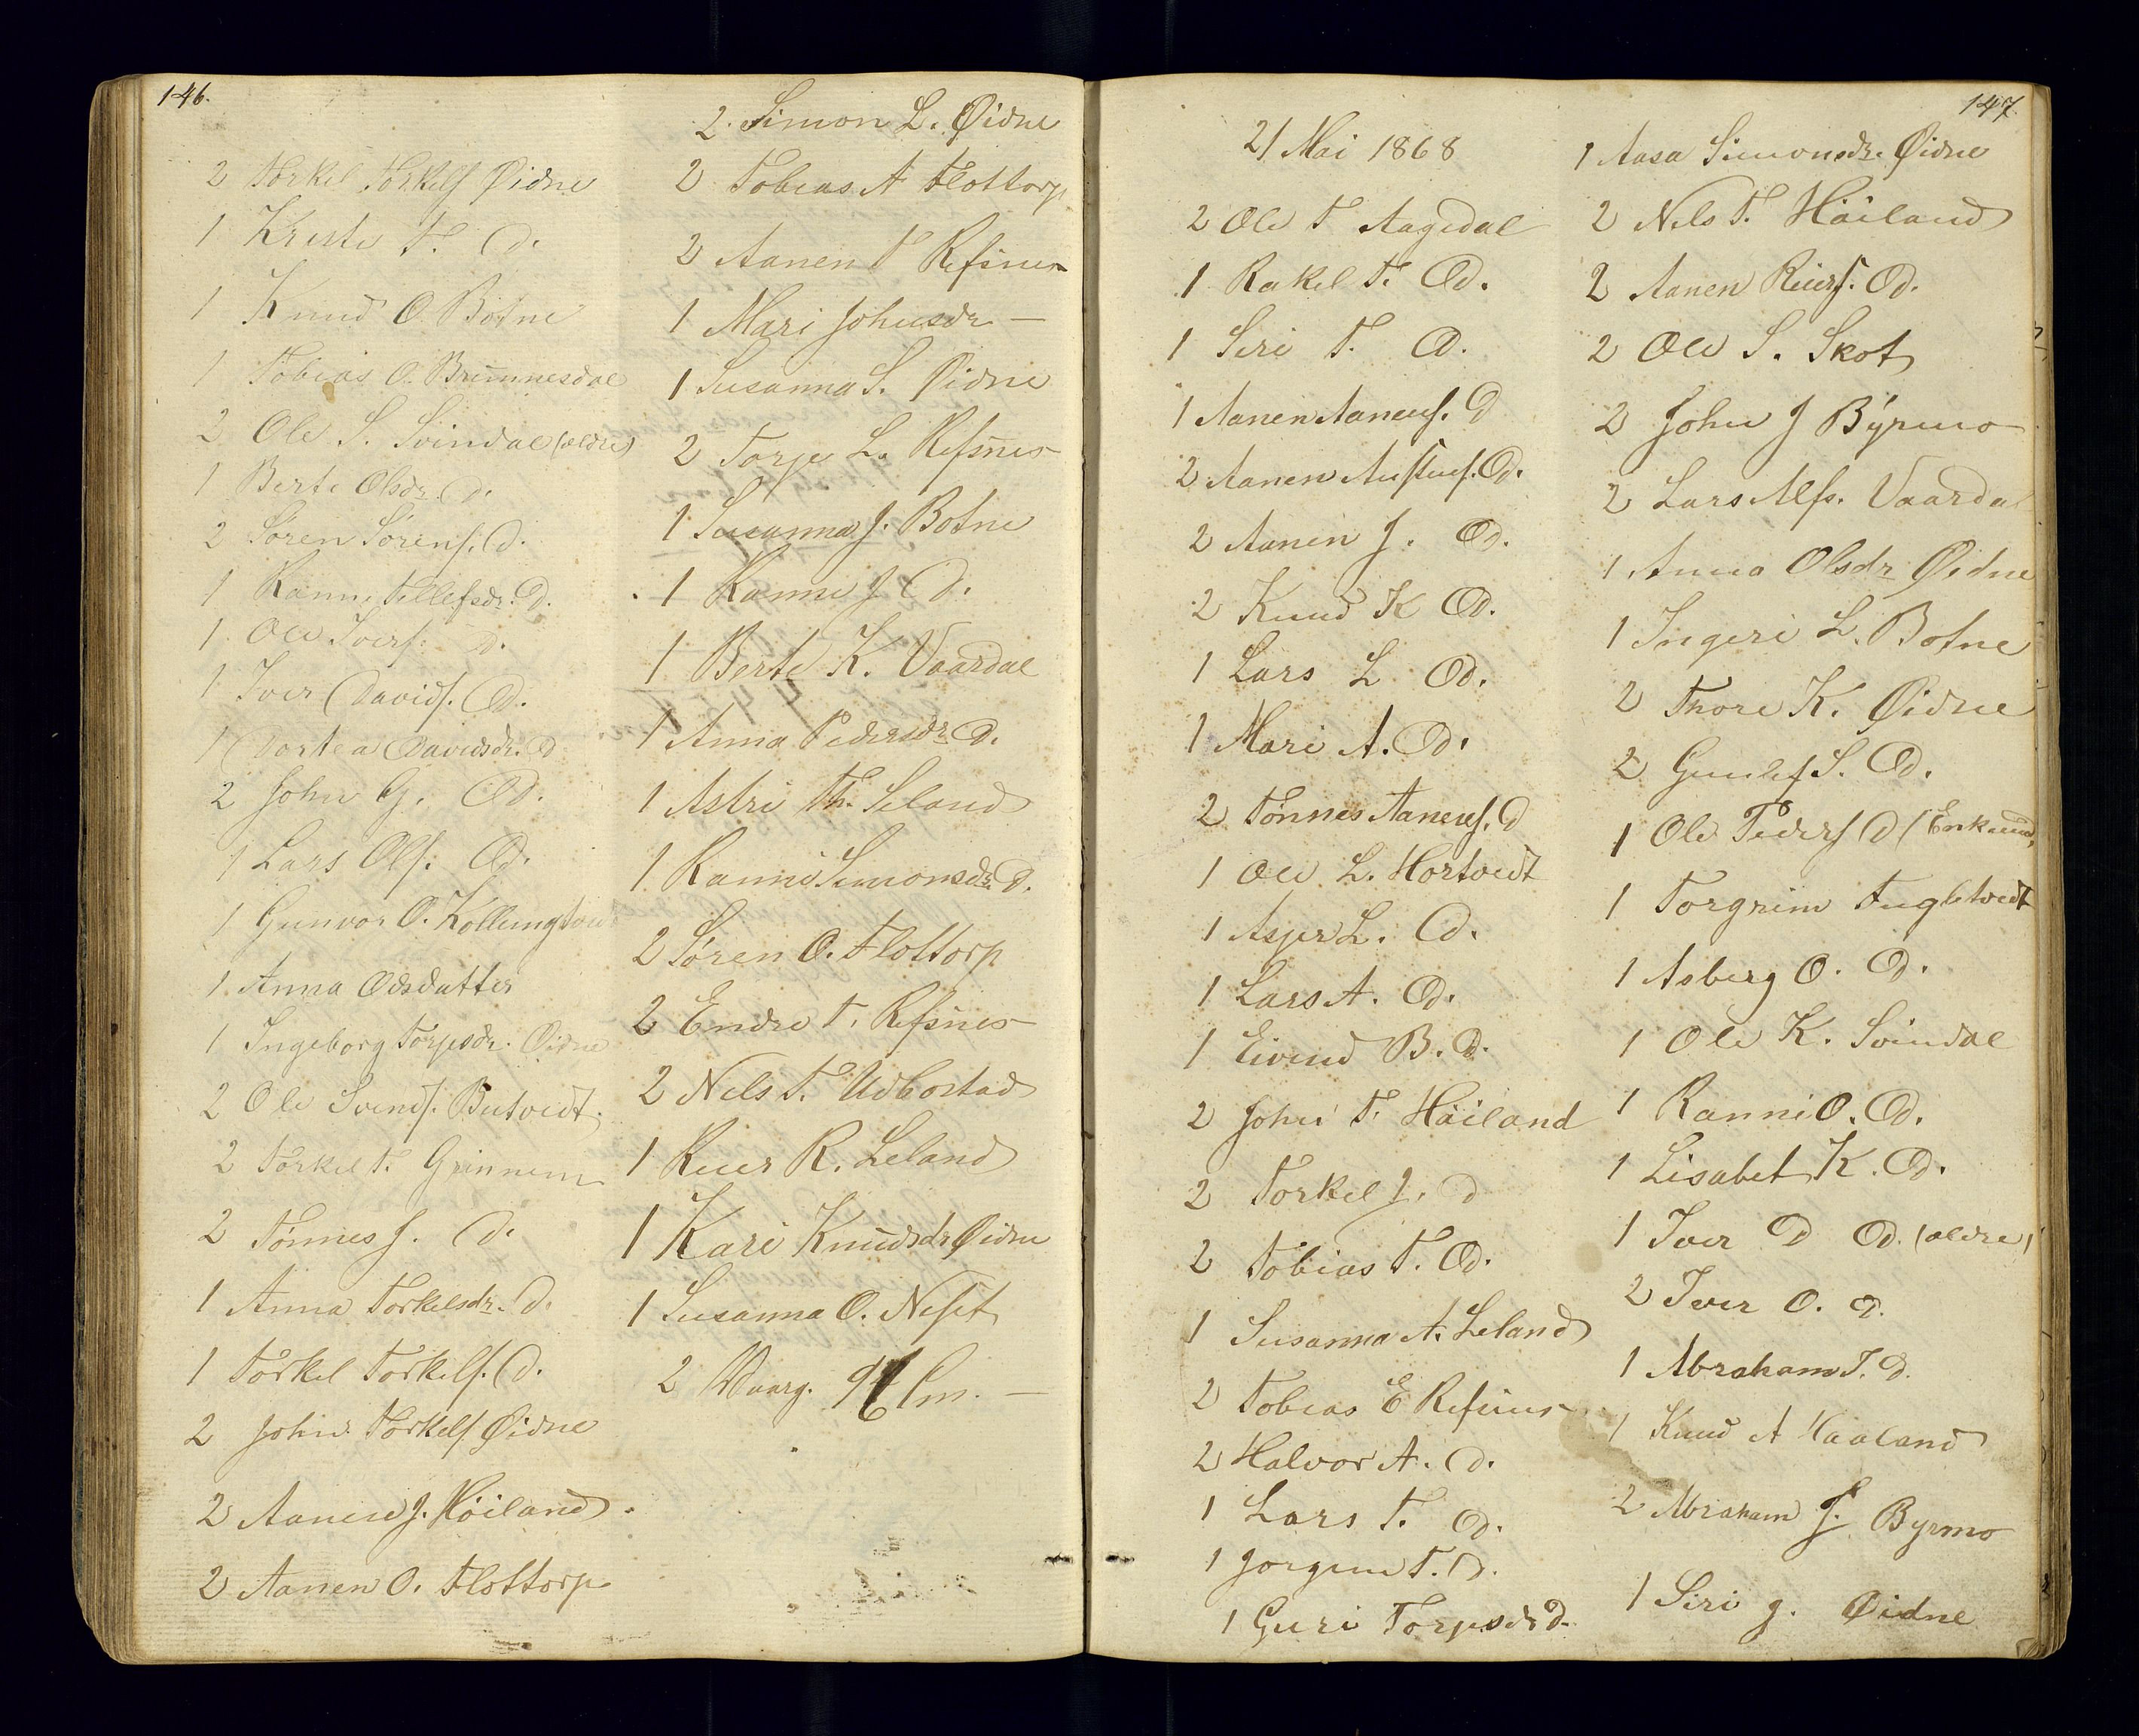 146.
2 Torkel Torkelf Øidne
1 Kriste T. D.
1 Knud O. Botne
1 Tobias O. Brumnesdal
2 Ole S. Svindal (ældre)
1 Berte Olsdr. D.
2 Søren Sørenf. D.
1 Ranni Tellefsdr. D.
1 Ole Iverf. D.
1 Iver Davidf. D.
1 Dortea Davidsdr. D
2 John G. D.
1 Lars Olf. D.
1 Gunvor O.
1 Anna Odsdatter
1 Ingeborg Torjesdr. Øidne
2 Ole Svendf. Butvedt.
2 Torkel T. Grinnem
2 Tønnes J. D.
1 Anna Torkelsdr. D.
1 Torkel Torkelf. D.
2 John Torkelf. Øidne
2 Aanen J. Höiland.
2 Aanen O. Flottorp
2. Simon L. Øidne
2 Tobias A Flottorp
2 Aanen T Refsnes
1 Mari Johnsdr —
1 Susanna S. Øidne
2 Torje L. Refsnes
1 Susanna J. Botne
1 Ranni J D.
1 Berte K. Vaardal
1 Anna Pedersdr D.
1 Astri Th. Seland
1 Ranni Simonsdr. D.
2 Søren O. Flottorp
2 Endre T. Refsnes
2 Nels T. Udbostad
1 Reier R. Leland
1 Kari Knudsdr Øidne
1 Susanna O. Neset
2 Waarg. 96 Pm. —
147.
21 Mai 1868
2 Ole T Aagedal
1 Rakel T. D.
1 Siri T. D.
1 Aanen Aanenf. D
2 Aanen Austenf. D.
2 Aanen J. D.
2 Knud K D.
1 Lars L D.
1 Mari A. D.
2 Tønnes Aanenf. D
1 Ole L. Hortvedt
1 Asjer L. D.
1 Lars A. D.
1 Eivind B. D.
2 John T. Häiland
2 Torkel J. D
2 Tobias T. D.
1 Susanna A. Leland
2 Tobias E Refsnes
2 Halvor A. D.
1 Lars T. D.
1 Jørgine T. D.
1 Guri Torjesdr D.
1 Aasa Simonsdr. Øidne
2 Nels T. Häiland
2 Aanen Reierf. D.
2 Ole S. Skot
2 John J Byrmo
2 Lars Alfs. Vaardal
1 Anna Olsdr Øidne
1 Ingeri L. Botne
2 Thore K. Øidne
2 Gunlef S. D.
1 Ole Pederf D (Enkemd.
1 Torgrim Fugletvedt
1 Asberg O. D.
1 Ole K. Svindal
1 Ranni O. D.
1 Lisabet K. D.
1 Iver D D. (ældre)
2 Iver O. D.
1 Abraham T. D.
1 Knud A Haaland
2 Abraham J. Byrmo
1 Siri J. Øidne